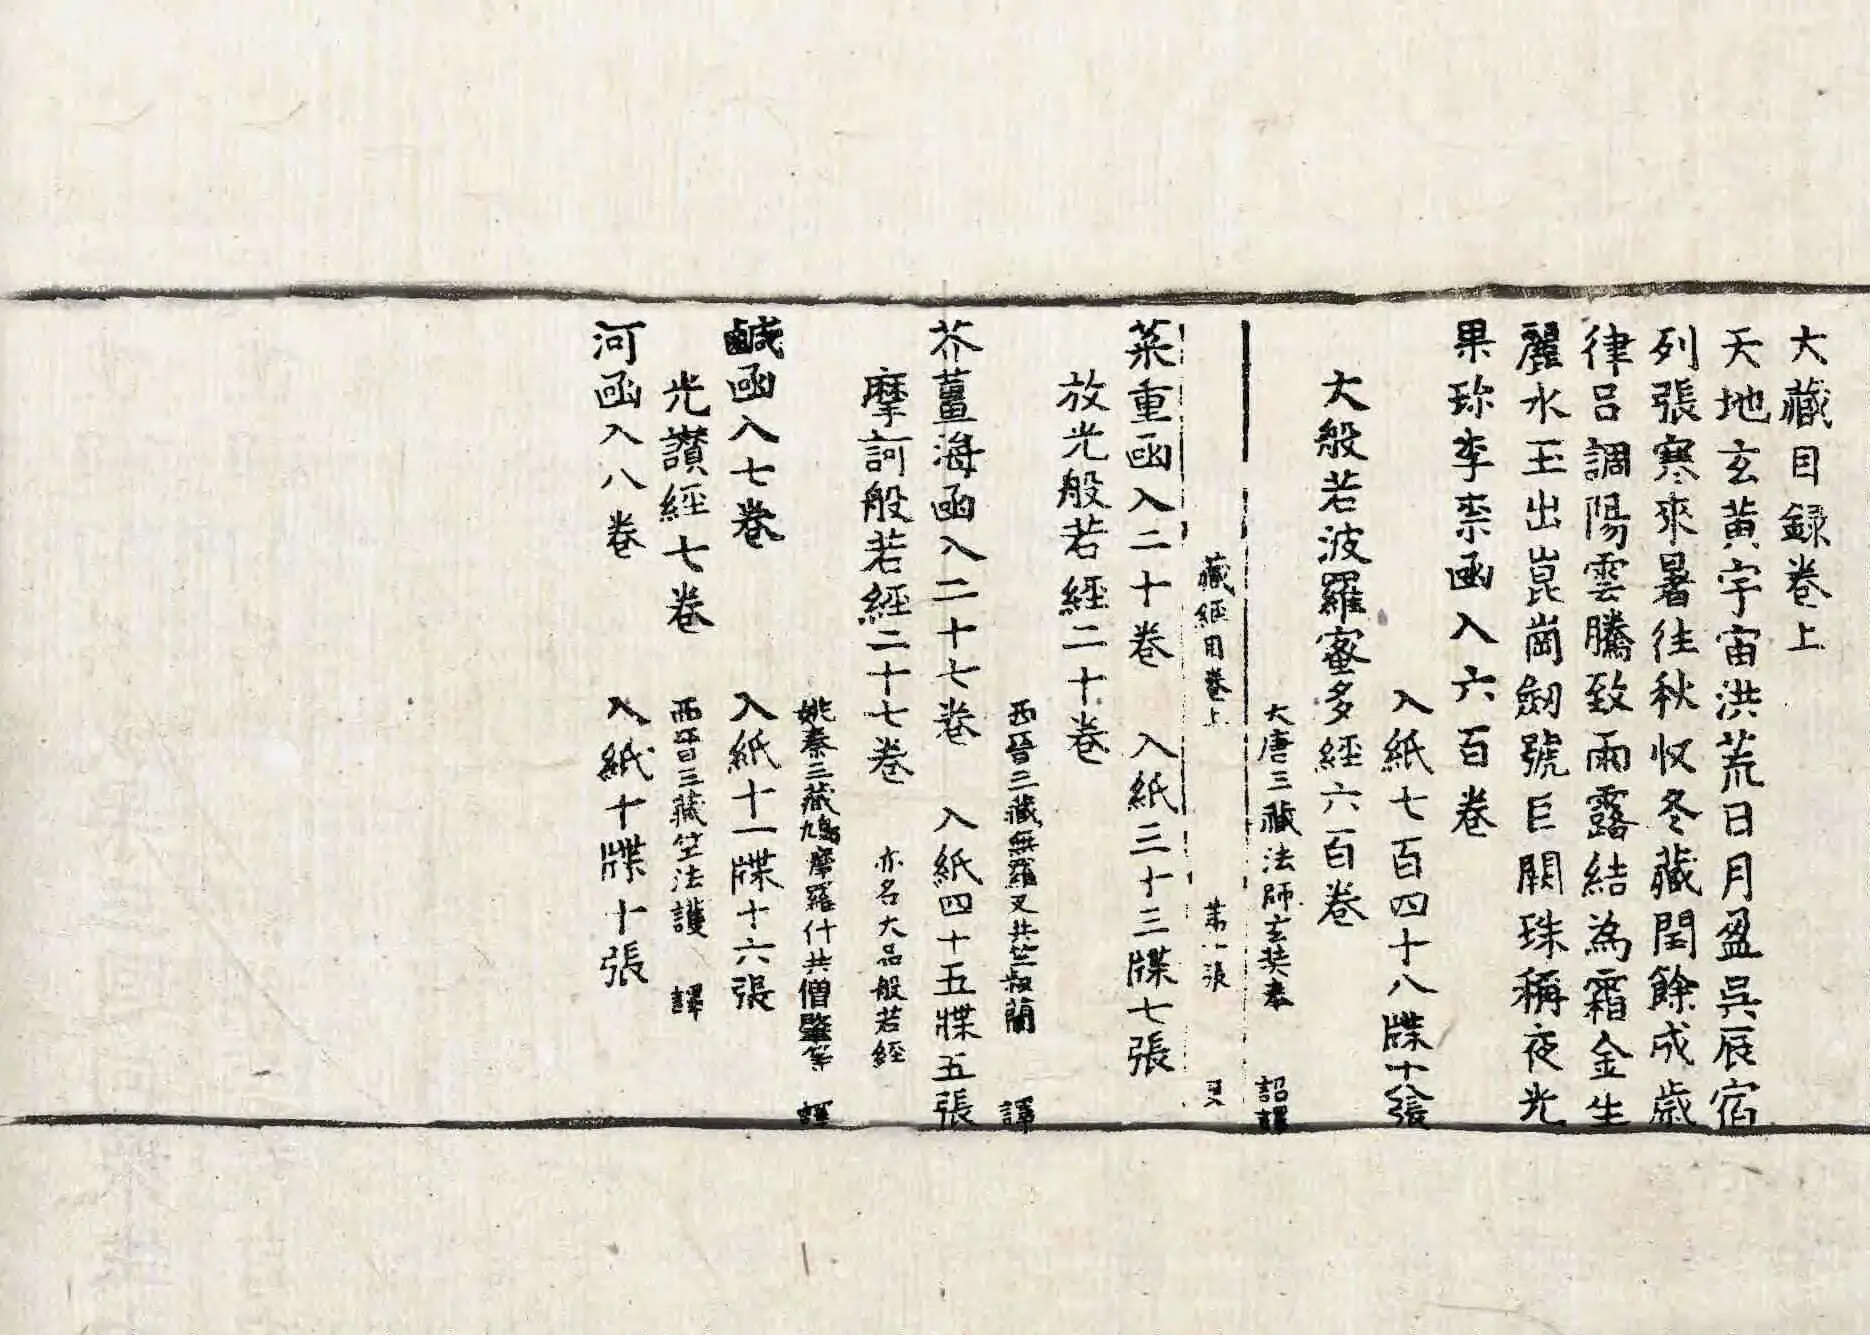 大藏目録卷上
天地玄黄宇宙洪荒日月盈昃辰宿
列張寒來暑往秋収冬藏閏餘成歲
律吕調陽雲騰致雨露結為霜金生
麗水玉出崑崗劒號巨闕珠稱夜光
果珎李柰函入六百卷
入紙七百四十八牒十八張
大般若波羅蜜多經六百卷
大唐三藏法師玄奘奉 詔譯
藏經目卷上 第一張
菜重函入二十卷 入紙三十三牒七張
放光般若經二十卷
西晉三藏無羅叉共竺叔蘭 譯
芥薑海函入二十七卷 入紙四十五牒五張
摩訶般若經二十七卷 亦名大品般若經
姚秦三藏鳩摩羅什共僧肇等 譯
鹹函入七卷 入紙十一牒十六張
光讚經七卷 西晉三藏竺法護 譯
河函入八卷 入紙十牒十張